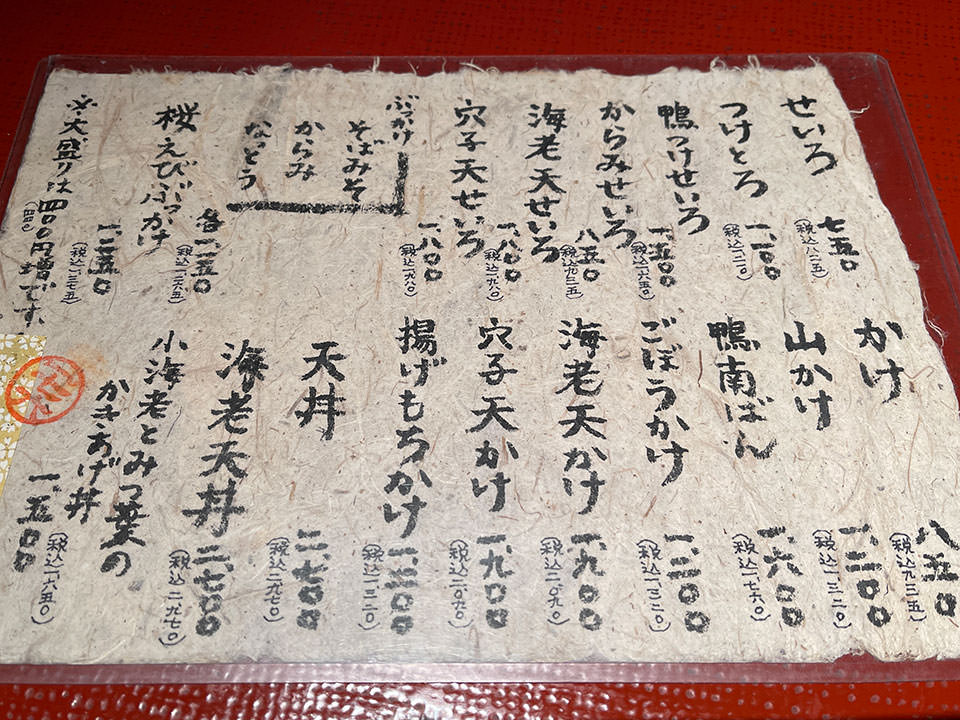 せいろ 七五〇
(税込八二五)
つけとろ 一、一〇〇
(税込一、二一〇)
鴨つけせいろ 一、五〇〇
(税込一、六五〇)
からみせいろ 八五〇
(税込九三五)
海老天せいろ 一、八〇〇
(税込一、九八〇)
穴子天せいろ 一、八〇〇
(税込一、九八〇)
ぶっかけ
そばみそ
からみ
なっとう
各一、一五〇
(税込一、二六五)
桜えびぶっかけ
一、二五〇
(税込一、三七五)
※大盛りは四〇〇円増です。
(四四〇)
かけ 八五〇
(税込九三五)
山かけ 一、二〇〇
(税込一、三二〇)
鴨南ばん 一、六〇〇
(税込一、七六〇)
ごぼうかけ 一、二〇〇
(税込一、三二〇)
海老天かけ 一、九〇〇
(税込二、〇九〇)
穴子天かけ 一、九〇〇
(税込二、〇九〇)
揚げもちかけ 一、二〇〇
(税込一、三二〇)
天丼 二、七〇〇
(税込二、九七〇)
海老天丼 二、七〇〇
(税込二、九七〇)
小海老とみつ葉の
かきあげ丼
一、五〇〇
(税込一、六五〇)